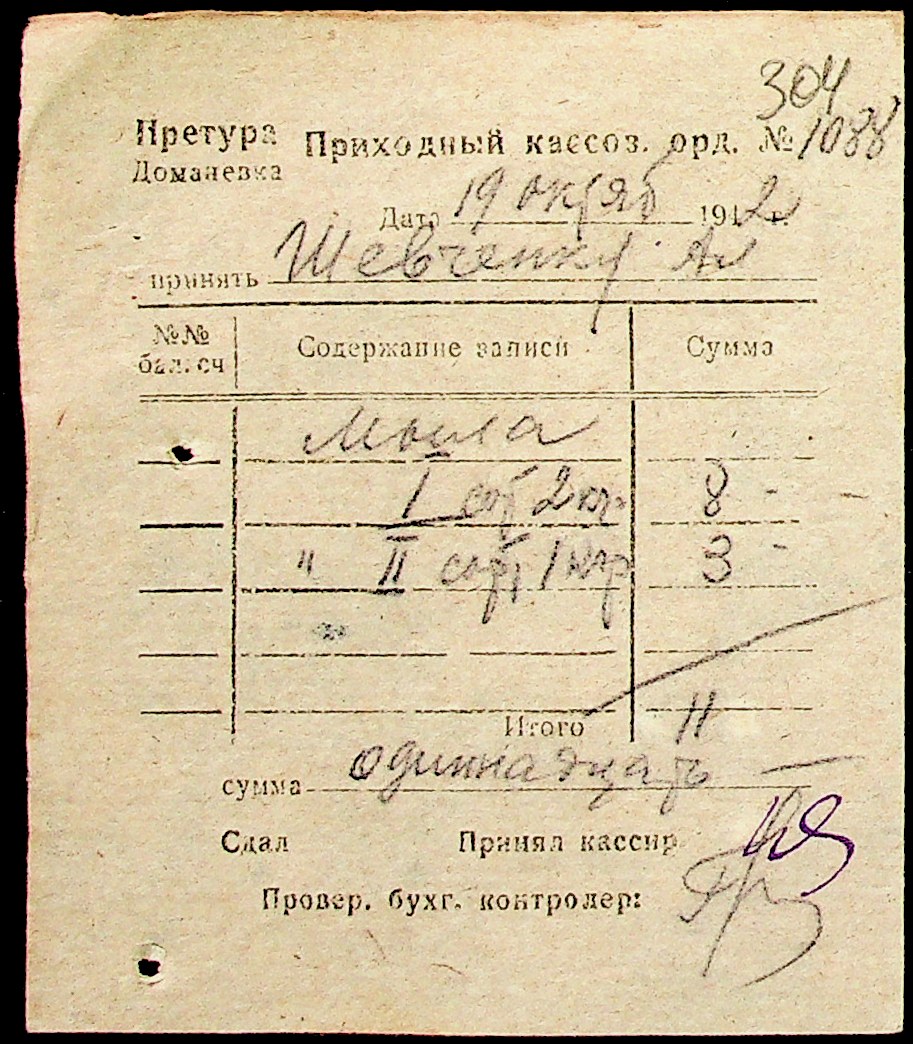 304
Претура Приходный кассов. орд. № 1088
Доманевка
Дата 19 октяб 1942 г.
принять Шевченку Ал
№№ бал. сч Содержание записи Сумма
Мыла
I сор 2 кг 8 -
" II сор, 1 кгр 3 -
Итого 11
сумма одиннадцать —
Сдал Принял кассир
Провер. бухг. контролер: